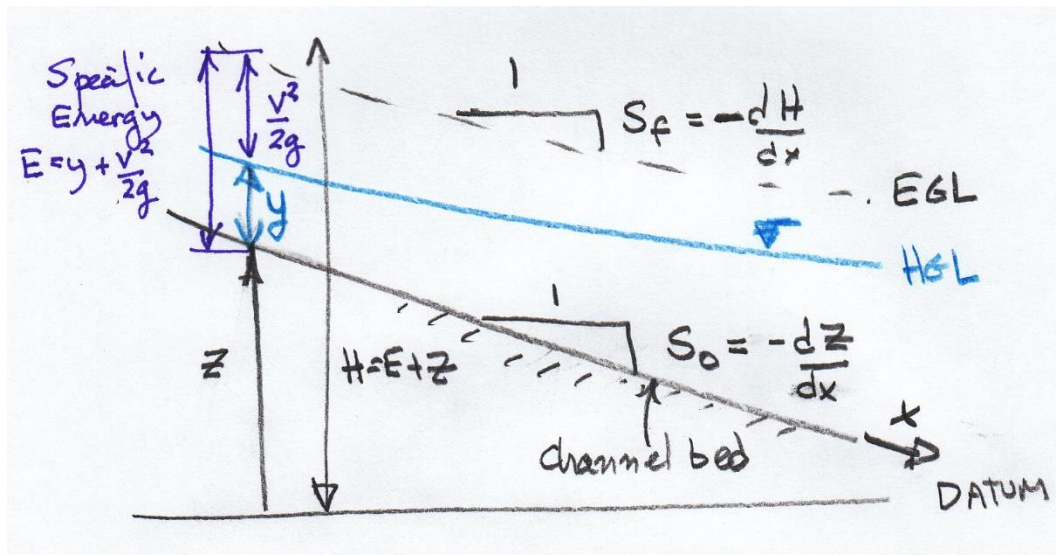 Specific
Energy
E = y + v²/2g
v²/2g
y
1
S_f = -dH/dx
EGL
HGL
Z
H=E+Z
1
S_0 = -dZ/dx
channel bed
X
DATUM